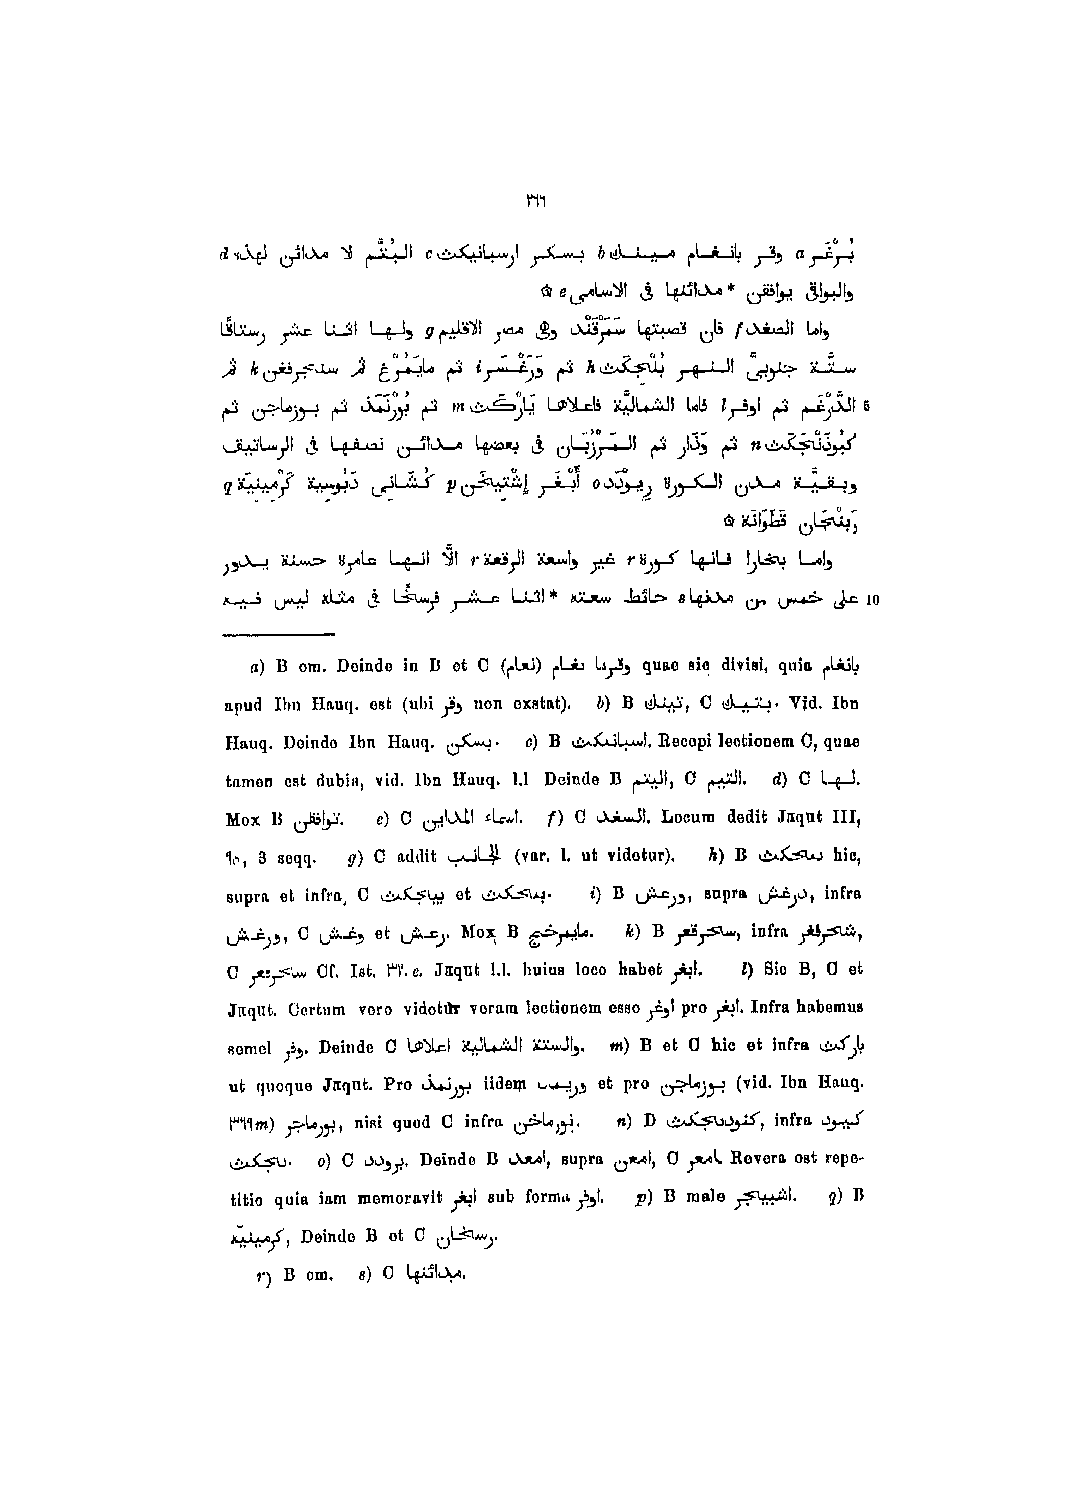 ٢٦٦
بُرْغَر a وقر بانغام مينك b بسكر ارسبانيكث c البُتَّم لا مدائن لهذه d
والبواقى يوافقن * مدائنها فى الاسامى e ۞
واما الصغد f فان قصبتها سَمَرْقَنْد وهى مصر الاقليم g ولها اثنا عشر رستاقًا
ستَّة جنوبىَّ النهر بُنْجِكَث h ثم وَرَغْسَر i ثم مايَمُرْغ ثم سنجرفغن k ثم
5 الدَّرْغَم ثم اوفر l فاما الشماليَّة فاعلاها يَارْكَث m ثم بُورْنَمَذ ثم بوزماجن ثم
كَبُوذَنْجَكَث n ثم وَذَار ثم المَرْزُبَان فى بعضها مدائن نصفها فى الرساتيق
وبقيَّة مدن الكورة ريوْدَد o أَبْغَر إِشْتِيخَن p كُشَانى دَبُوسية كَرْمِينِيَة q
رَبِنْجَان قَطَوَانَة ۞
واما بخارا فانها كورة r غير واسعة الرقعة r الَّا انها عامرة حسنة يدور
10 على خمس من مدنها s حائط سعته * اثنا عشر فرسخًا فى مثله ليس فيه
a) B om. Deinde in B et C وقرما نغام (نعام) quae sic divisi, quia بانغام
apud Ibn Hauq. est (ubi وقر non exstat). b) B تينك, C بتيك. Vid. Ibn
Hauq. Deinde Ibn Hauq. بسكن. c) B اسبانيكث. Recepi lectionem C, quae
tamen est dubia, vid. Ibn Hauq. l.l Deinde B اليتم, C التيم. d) C لها.
Mox B توافقن. e) C اسماء المداين. f) C السغد. Locum dedit Jaqut III,
٩٥, 3 seqq. g) C addit الجانب (var. l. ut videtur). h) B hic,
supra et infra, C et i) B ورعش, supra درغش, infra
ورغش, C وغش et رعش. Mox B مايمرخج. k) B infra
C Cf. Ist. ٣٢٠ e. Jaqut l.l. huius loco habet ابغر. l) Sic B, C et
Jaqut. Certum vero videtur veram lectionem esse اوفر pro ابغر. Infra habemus
semel وفر. Deinde C والستة الشمالية اعلاها. m) B et C hic et infra باركث
ut quoque Jaqut. Pro بورنمذ iidem et pro بوزماجن (vid. Ibn Hauq.
٣٦٩ m) بورماجر, nisi quod C infra نورماخن. n) B infra كبيود
o) C برودد. Deinde B امعد, supra امعن, C امعر. Revera est repe-
titio quia iam memoravit ابغر sub forma اوفر. p) B male اشبياجر. q) B
كرمينيّة, Deinde B et C رسخان.
r) B om. s) C مدائنها.